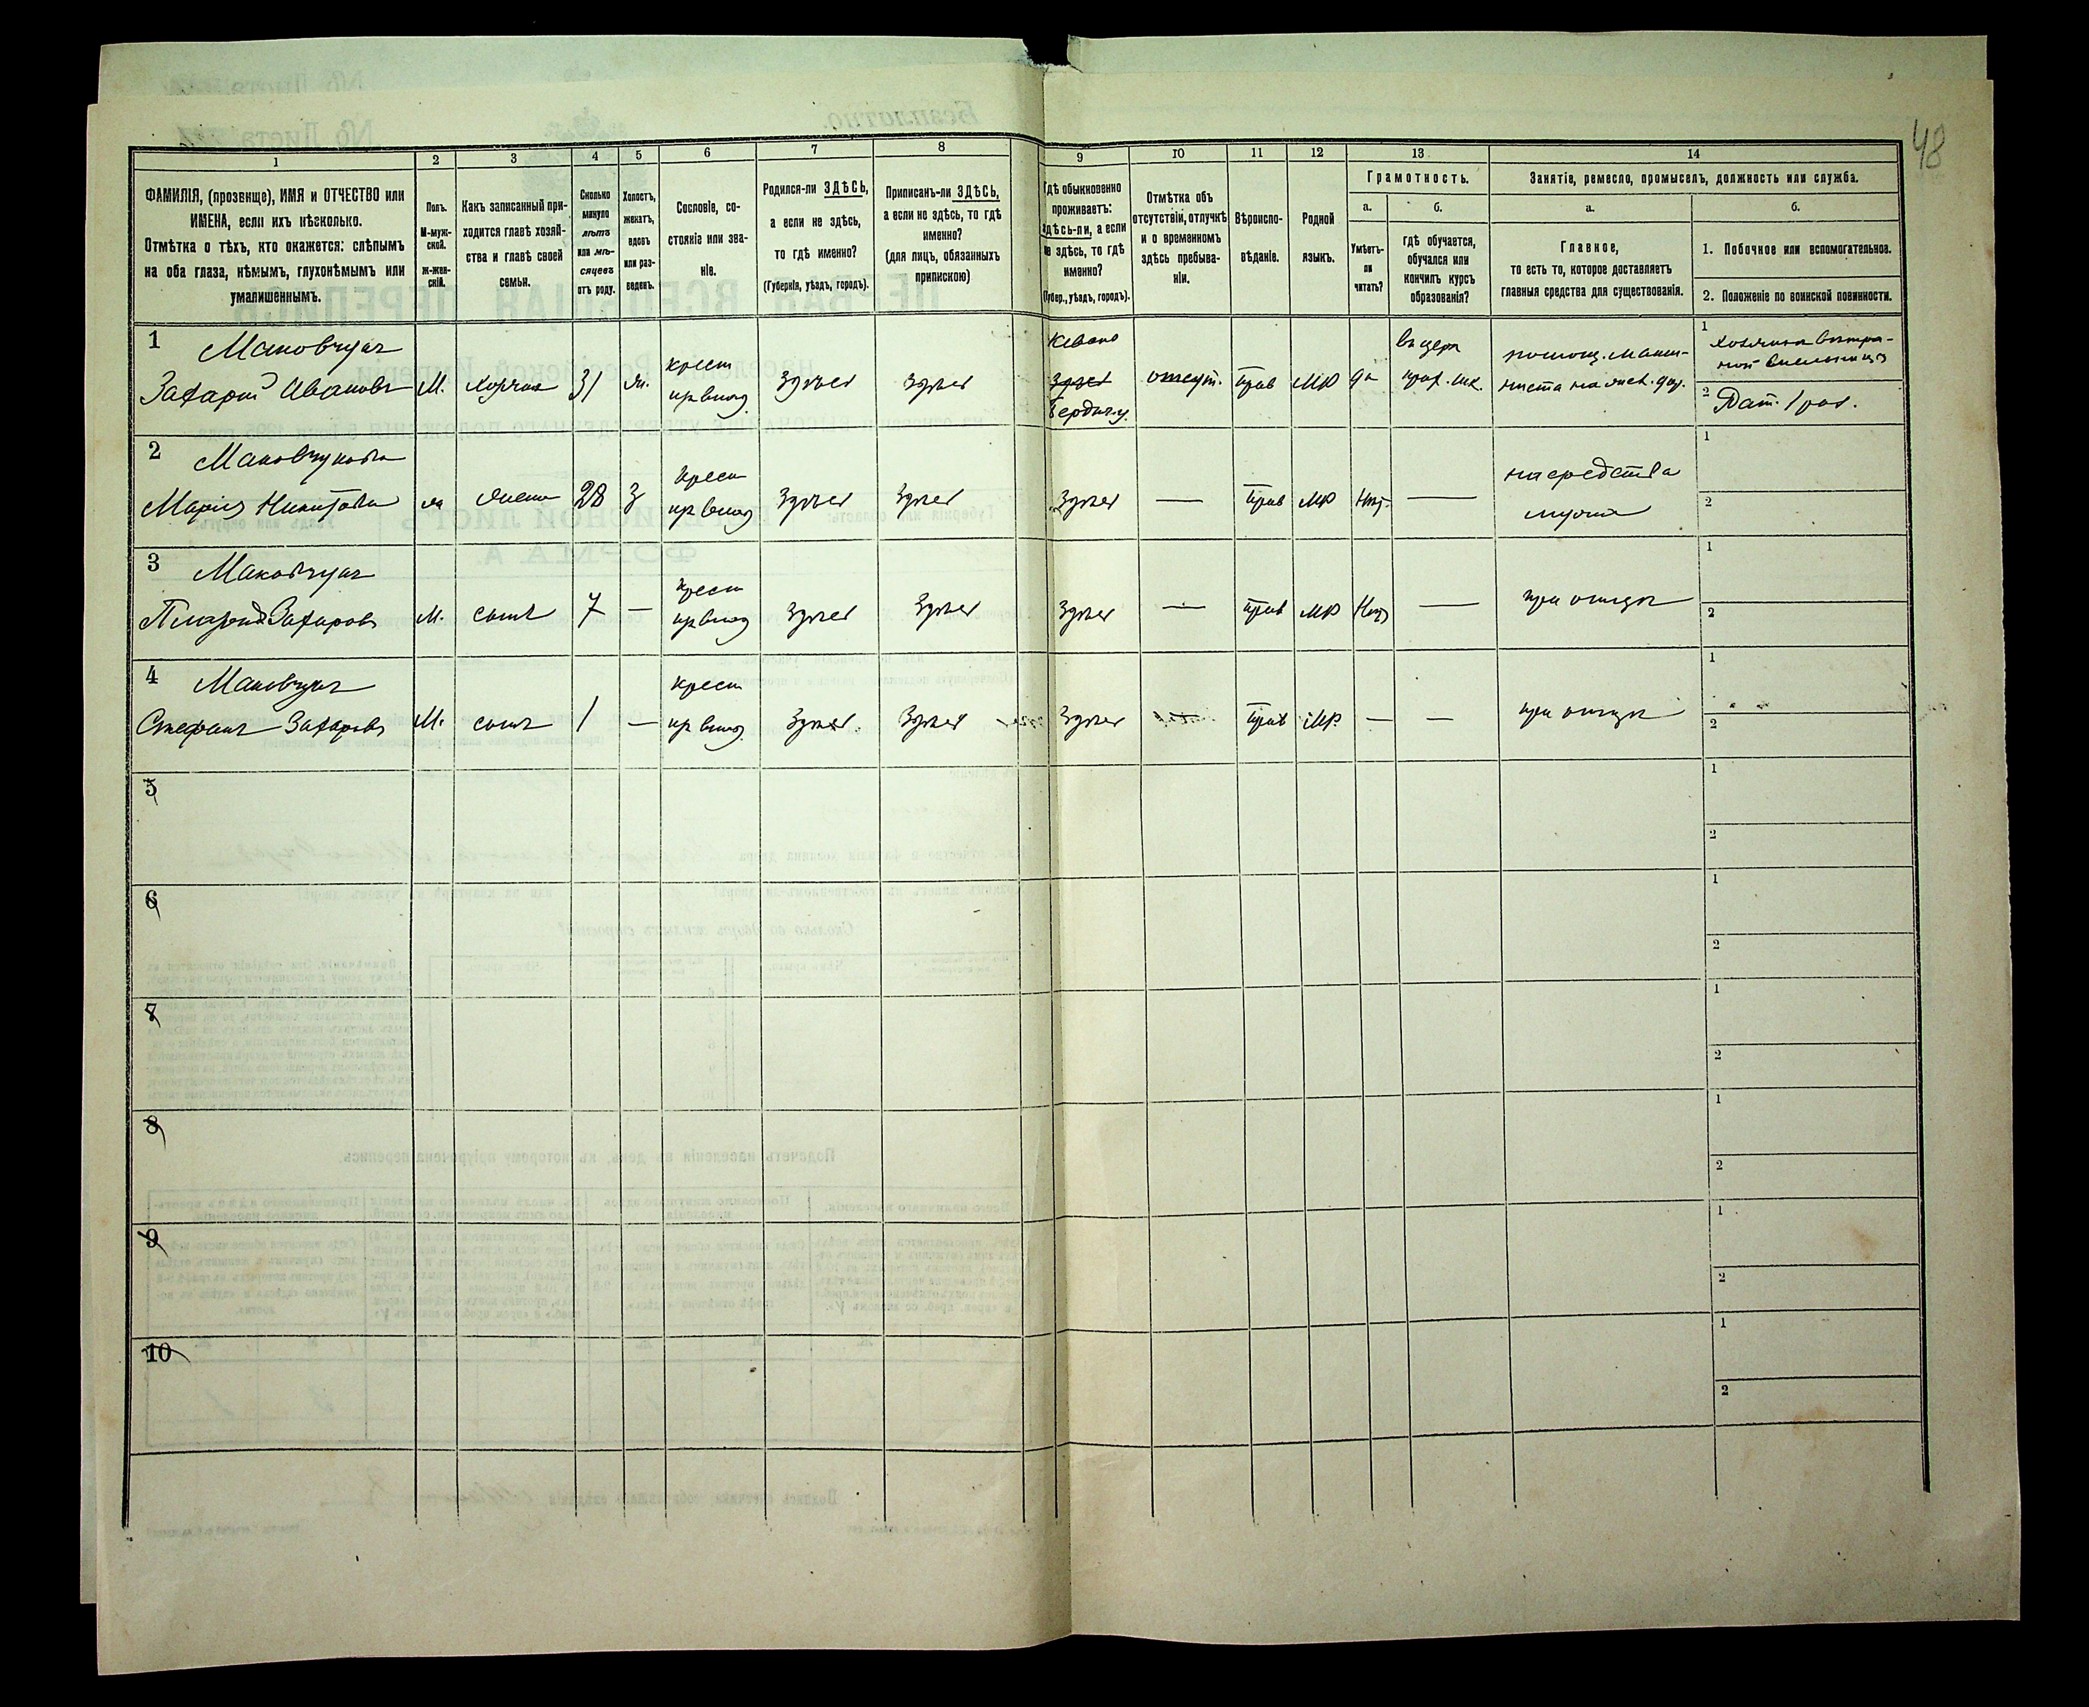 48
1
2
3
4
5
6
7
8
9
10
11
12
13
14
ФАМИЛІЯ, (прозвище), ИМЯ и ОТЧЕСТВО или
ИМЕНА, если ихъ нѣсколько.
Отмѣтка о тѣхъ, кто окажется: слѣпымъ
на оба глаза, нѣмымъ, глухонѣмымъ или
умалишеннымъ.
Полъ.
М-муж-
ской.
ж-жен-
скій.
Какъ записанный при-
ходится главѣ хозяй-
ства и главѣ своей
семьи.
Сколько
минуло
лѣтъ
или мѣ-
сяцевъ
отъ роду.
Холостъ,
женатъ,
вдовъ
или раз-
веденъ.
Сословіе, со-
стояніе или зва-
ніе.
Родился-ли ЗДѢСЬ,
а если не здѣсь,
то гдѣ именно?
(Губернія, уѣздъ, городъ).
Приписанъ-ли ЗДѢСЬ,
а если не здѣсь, то гдѣ
именно?
(для лицъ, обязанныхъ
припискою)
Гдѣ обыкновенно
проживаетъ:
здѣсь-ли, а если
не здѣсь, то гдѣ
именно?
(Губер., уѣздъ, городъ).
Отмѣтка объ
отсутствіи, отлучкѣ
и о временномъ
здѣсь пребыва-
ніи.
Вѣроиспо-
вѣданіе.
Родной
языкъ.
Грамотность.
а.
б.
Умѣетъ-
ли
читать?
гдѣ обучается,
обучался или
кончилъ курсъ
образованія?
Занятіе, ремесло, промыселъ, должность или служба.
а.
б.
Главное,
то есть то, которое доставляетъ
главныя средства для существованія.
1. Побочное или вспомогательное.
2. Положеніе по воинской повинности.
1 Маковчукъ
Захарій Ивановъ
М.
хозяинъ
31
ж.
крест
здѣсь
здѣсь
здѣсь
Бердич. у.
отсут.
Прав
МР
да
въ церк
прих. шк.
помощ. маши-
ниста на жел. дор.
1
2
2 Маковчукова
Марія Никитова
жена
28
З
крест
здѣсь
здѣсь
здѣсь
—
Прав
МР
Нѣт.
—
на средства
мужа
1
2
3 Маковчукъ
Захаровъ
М.
сынъ
7
—
крест
здѣсь
здѣсь
здѣсь
—
Прав
МР
Нѣт
—
при отцѣ
1
2
4 Маковчукъ
Стефанъ Захаровъ
М.
сынъ
1
—
крест
здѣсь
здѣсь
здѣсь
—
Прав
МР.
—
—
при отцѣ
1
2
5
1
2
6
1
2
7
1
2
8
1
2
9
1
2
10
1
2